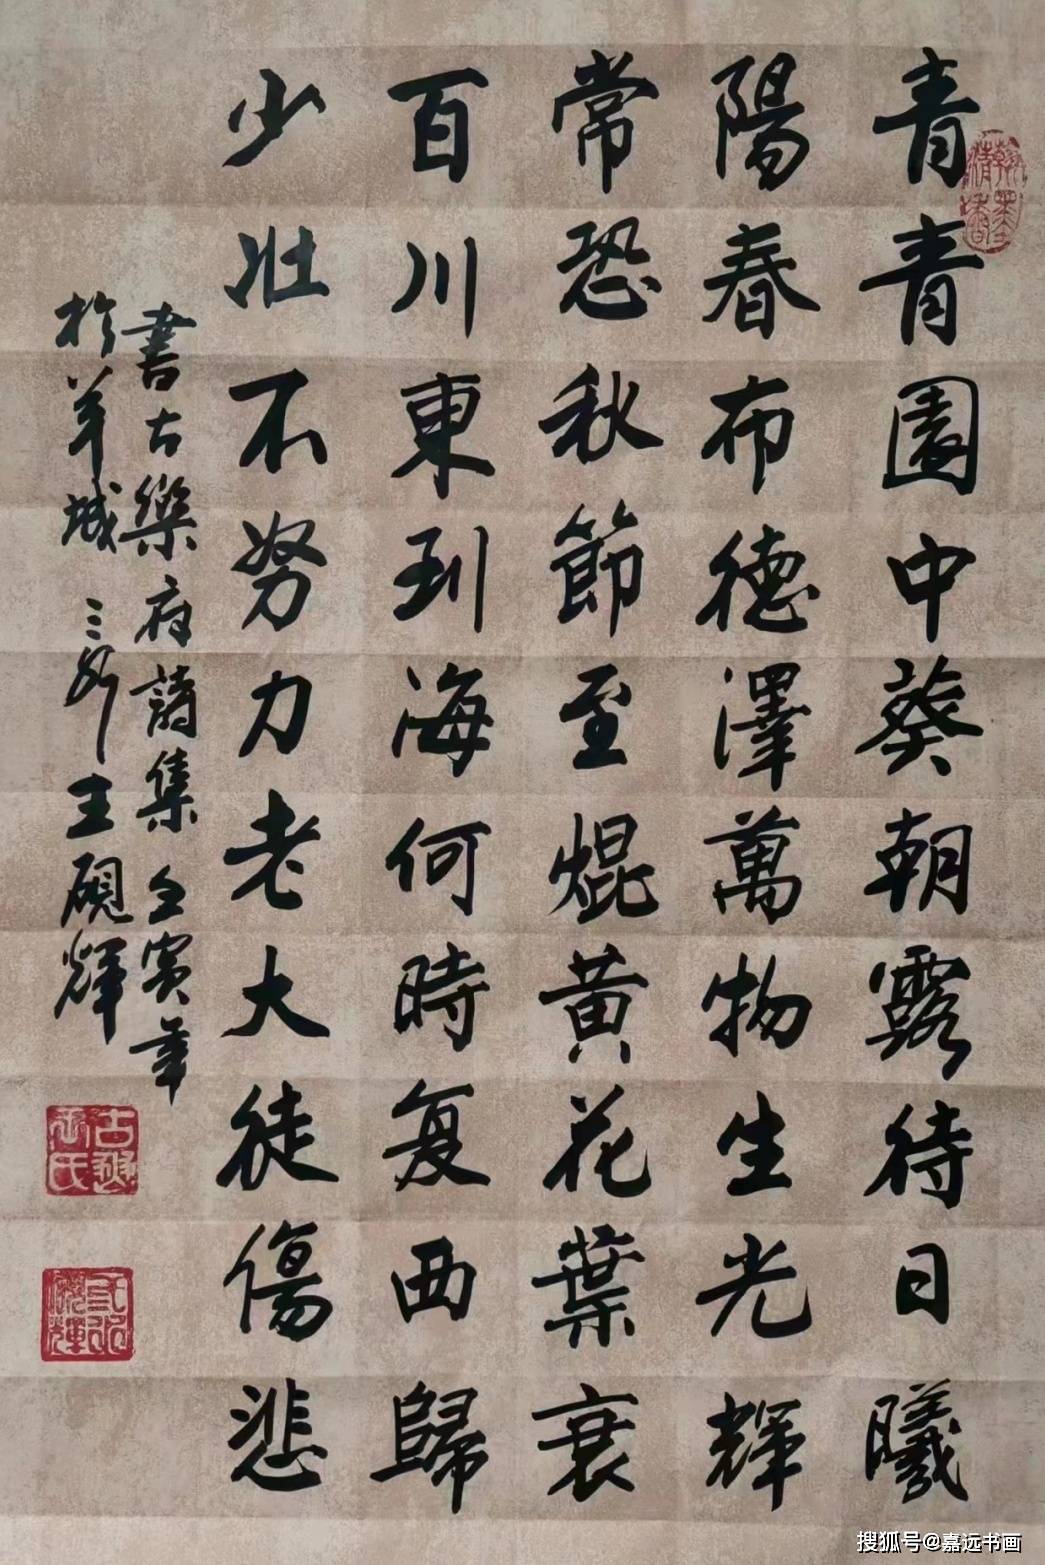 青青園中葵朝露待日曦
陽春布德澤萬物生光輝
常恐秋節至焜黄花葉衰
百川東到海何時复西歸
少壯不努力老大徒傷悲
書古樂府詩集壬寅年
於羊城
王硯輝
搜狐号@嘉远书画